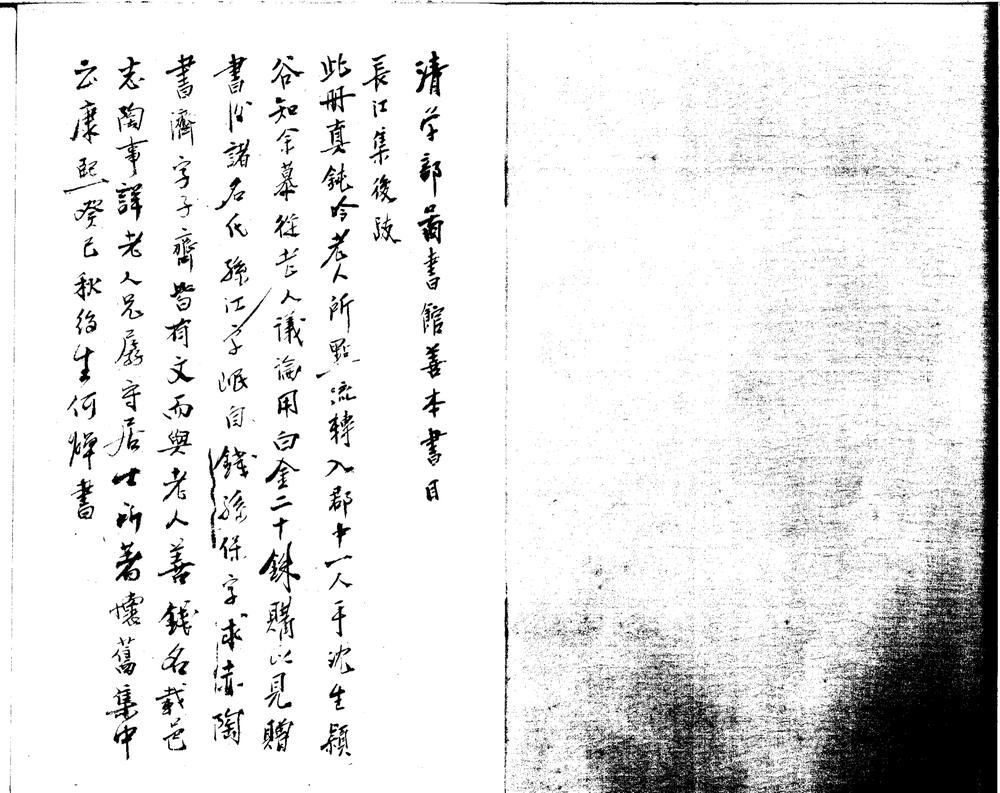 清学部啚書館善本書目
長江集後跋
此冊真鈍吟老人所點流轉入郡中一人手沈生穎
谷知余慕從老人議論用白金二十銖購以見贈
書後諸名氏孫江字岷自錢孫保字求赤陶
書濟字子齊皆有文而與老人善錢名載邑
志陶事詳老人兄孱守居士所著懷舊集中
云康熙癸巳秋後生何焯書